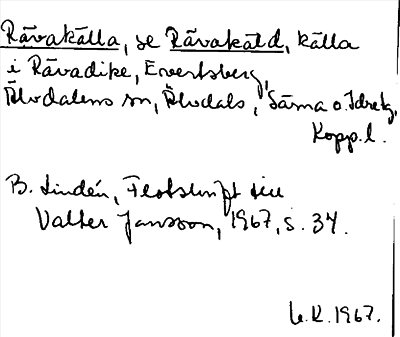 Råvakälla, se Råvakäld, källa
i Råvadike, Evertsberg,
Älvdalens sn, Älvdals, Särna o. Idre tg,
Kopp. l.
B. Lindén, Festskrift till
Valter Jansson, 1967, s. 34.
1967.